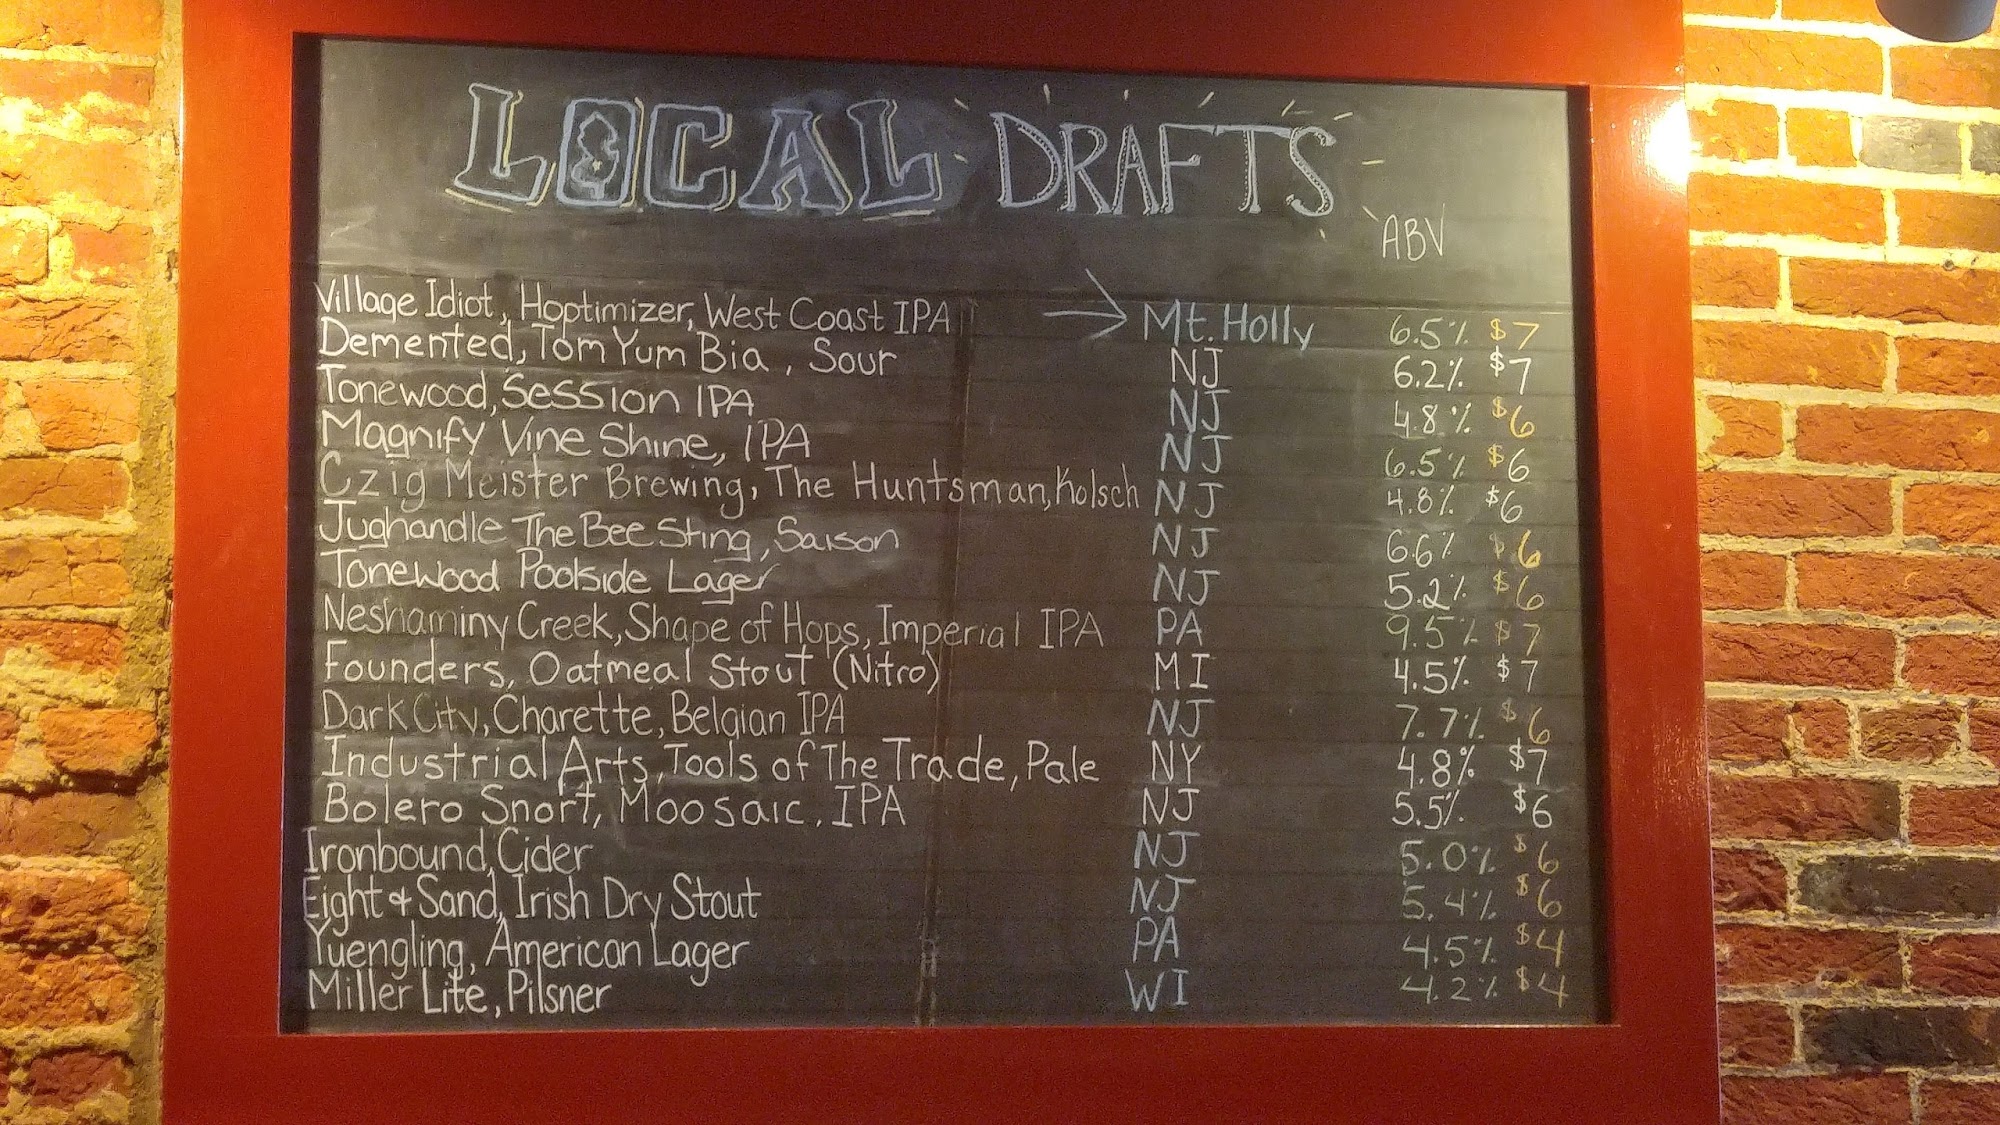 LOCAL DRAFTS
ABV
Village Idiot, Hoptimizer, West Coast IPA → Mt. Holly 6.5% $7
Demented, Tom Yum Bia, Sour NJ 6.2% $7
Tonewood, Session IPA NJ 4.8% $6
Magnify Vine Shine, IPA NJ 6.5% $6
Czig Meister Brewing, The Huntsman, Kolsch NJ 4.8% $6
Jughandle The Bee Sting, Saison NJ 6.6% $6
Tonewood Poolside Lager NJ 5.2% $6
Neshaminy Creek, Shape of Hops, Imperial IPA PA 9.5% $7
Founders, Oatmeal Stout (Nitro) MI 4.5% $7
Dark City, Charette, Belgian IPA NJ 7.7% $6
Industrial Arts, Tools of The Trade, Pale NY 4.8% $7
Bolero Snort, Moosaic, IPA NJ 5.5% $6
Ironbound, Cider NJ 5.0% $6
Eight & Sand, Irish Dry Stout NJ 5.4% $6
Yuengling, American Lager PA 4.5% $4
Miller Lite, Pilsner WI 4.2% $4